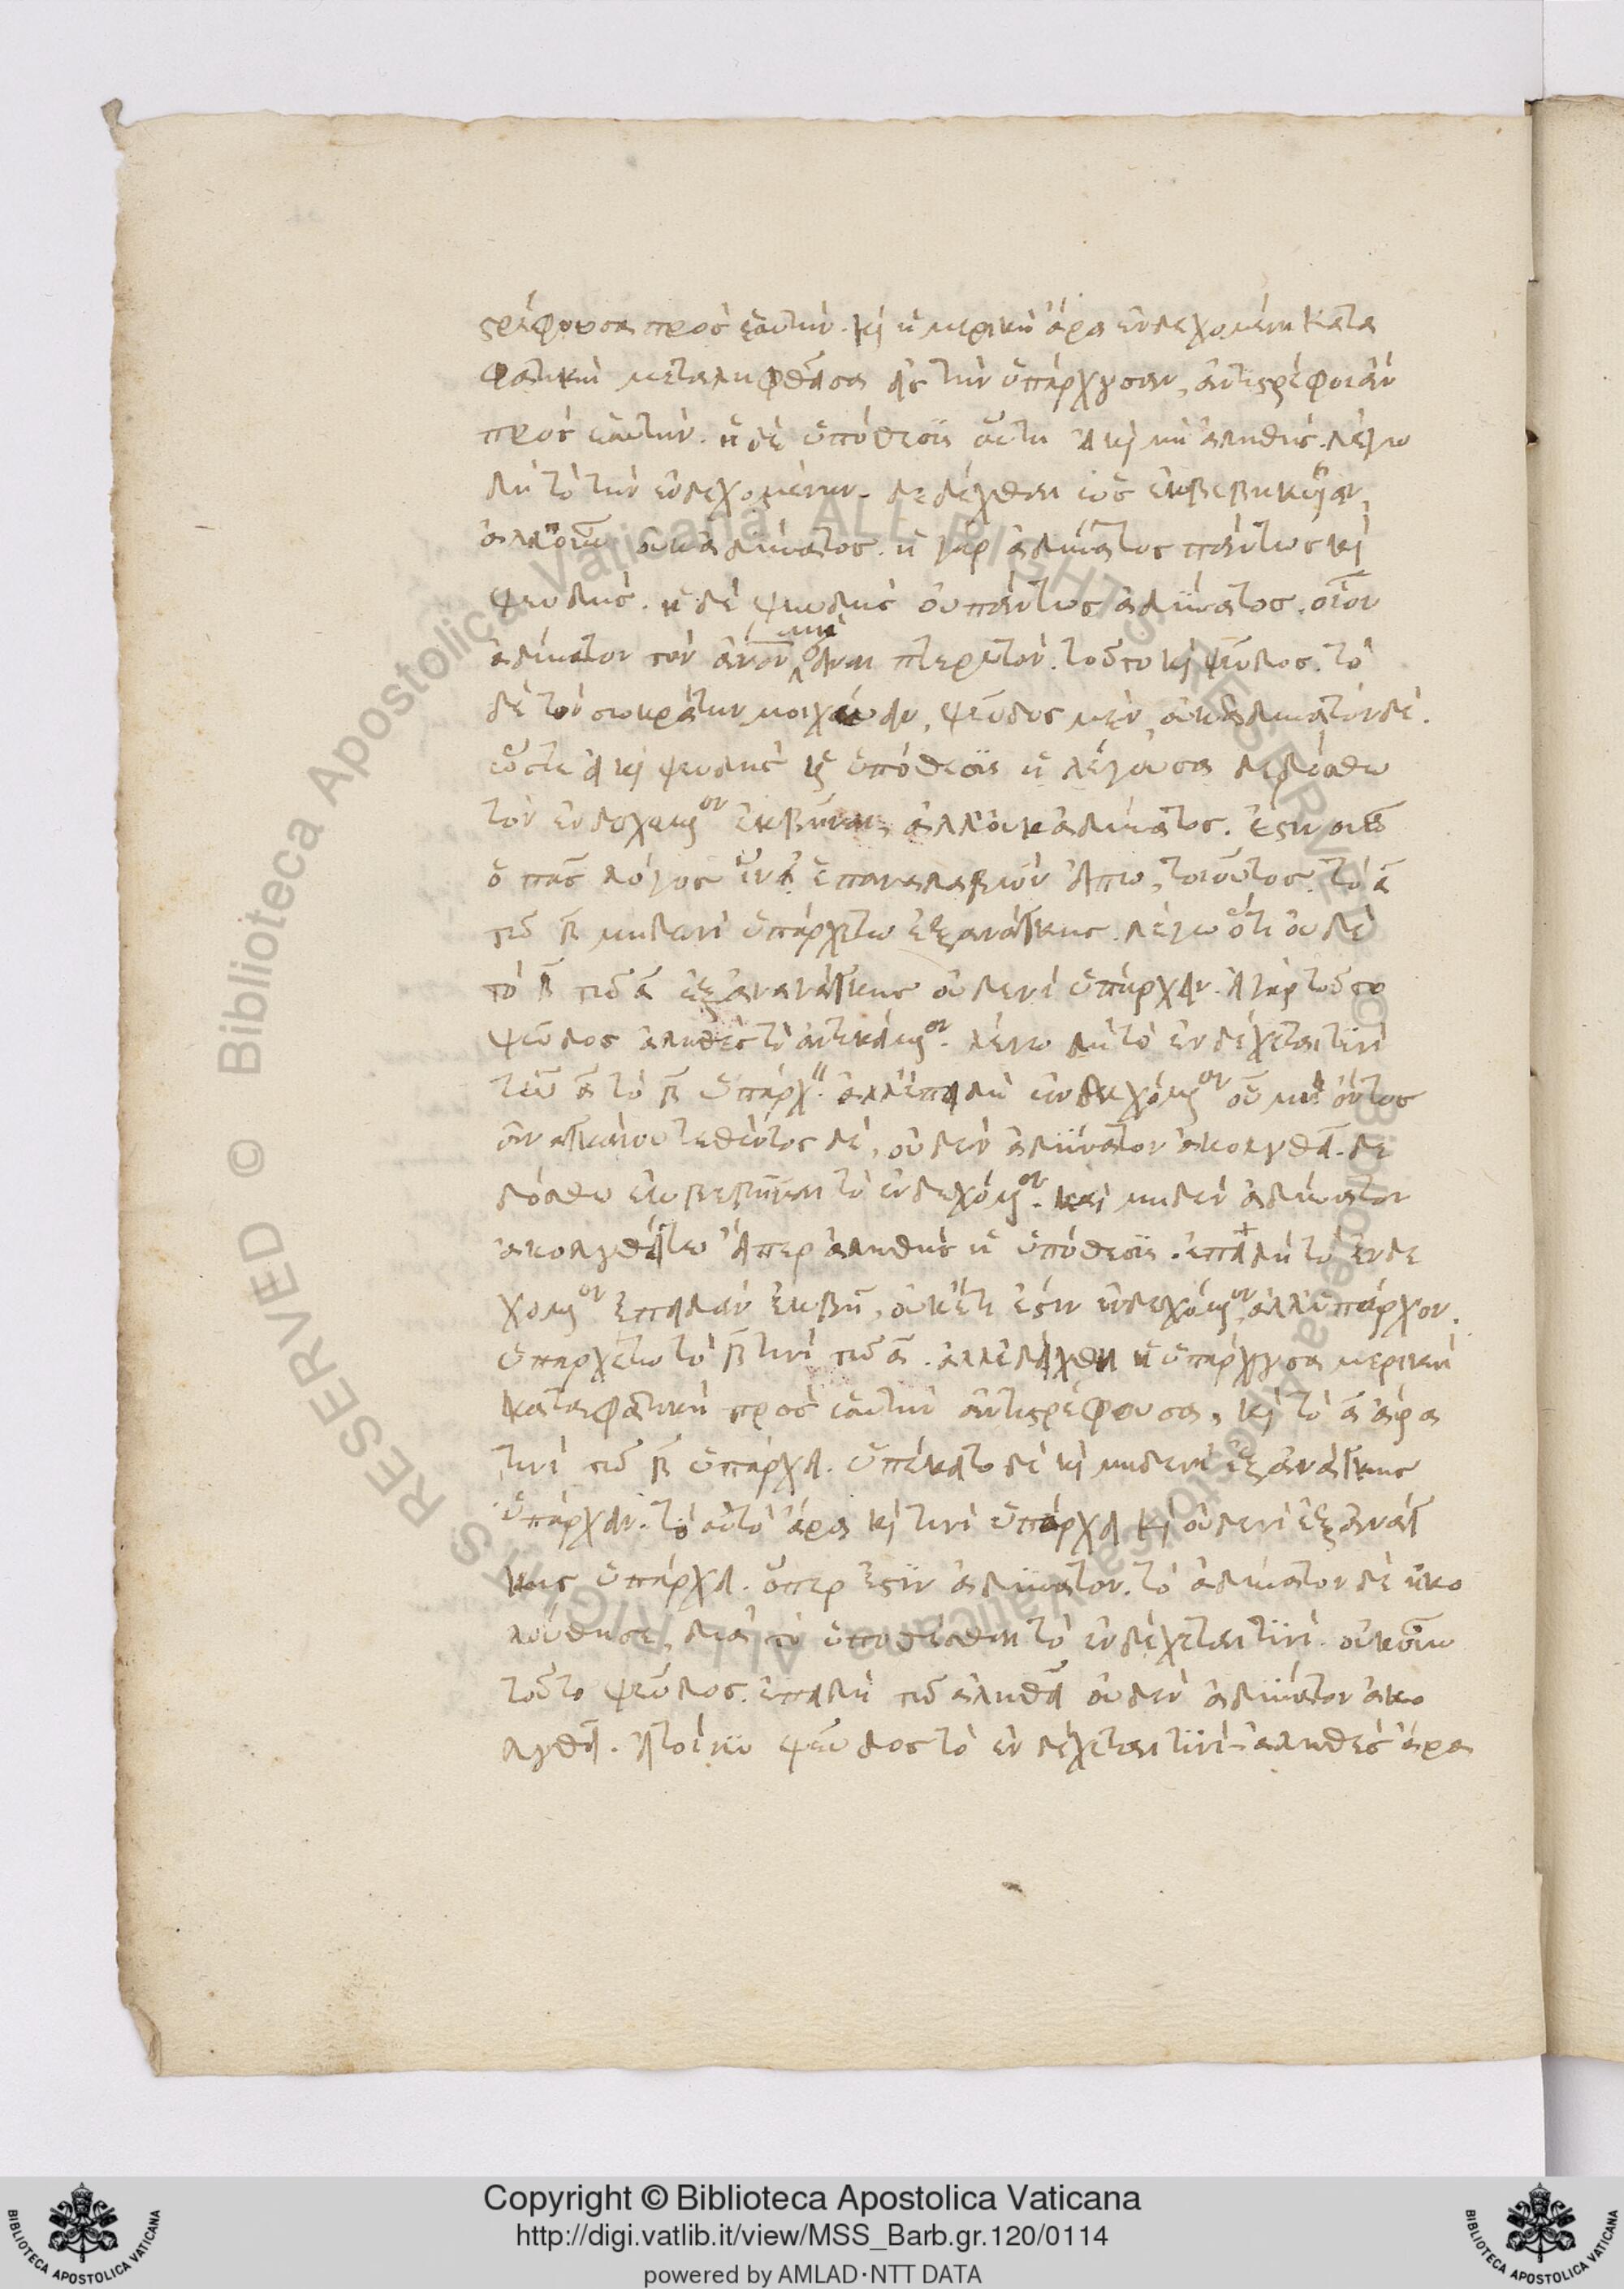 στρέφουσα πρὸς ἑαυτήν. καὶ ἡ μερικὴ ἄρα ἐνδεχομένη κατα
φατικὴ μεταληφθεῖσα εἰς τὴν ὑπάρχουσαν, ἀντιστρέφει ἂν
πρὸς ἑαυτήν. ἡ δὲ ὑπόθεσις αὕτη εἰ καὶ μὴ ἀληθής. λέγω
δὴ τὸ τὴν ἐνδεχομένην δεδέχθαι ὡς ἐκβεβηκυῖαν,
ἀλλ' οὖν οὐκ ἀδύνατος. ἡ γὰρ ἀδύνατος πάντως καὶ
ψευδής. ἡ δὲ ψευδὴς οὐ πάντως ἀδύνατος. οἷον
ἀδύνατον τὸν ἄνον μὴ εἶναι πτερωτόν. τοῦτο καὶ ψεῦδος. τὸ
δὲ τὸν σωκράτην μοιχεύειν, ψεῦδος μὲν, οὐκ ἀδύνατον δέ.
ὥστε εἰ καὶ ψευδὴς ἡ ὑπόθεσις ἡ λέγουσα δεδόσθω
τὸν ἐνδεχόμενον ἐκβῆναι, ἀλλ' οὐκ ἀδύνατος. ἔστιν οὖν
ὁ πᾶς λόγος ἵνα ἐπαναλαβὼν εἴπω, τοιοῦτος. τὸ α
τῷ β μηδενὶ ὑπαρχέτω ἐξ ἀνάγκης. λέγω ὅτι οὐδὲ
τὸ β τῷ α ἐξ ἀνάγκης οὐδενὶ ὑπάρχειν. εἰ γὰρ τοῦτο
ψεῦδος ἀληθὲς τὸ ἀντικείμενον. λέγω δὴ τὸ ἐνδέχεται τινὶ
τῷ α τὸ β ὑπάρχειν. ἀλλ' ἐπειδὴ ἐνδεχόμενον οὗ μὴ ὄντος
ἀναγκαίου τεθέντος δὲ, οὐδὲν ἀδύνατον ἀκολουθεῖ. δε
δόσθω ἐκβεβηκέναι τὸ ἐνδεχόμενον. καὶ μηδὲν ἀδύνατον
ἀκολουθείτω εἴπερ ἀληθὴς ἡ ὑπόθεσις. ἐπειδὴ τὸ ἐνδε
χόμενον ἐπειδὰν ἐκβῆ, οὐκέτι ἐστὶν ἐνδεχόμενον ἀλλ' ὑπάρχον.
ὑπαρχέτω τὸ β τινὶ τῷ α. ἀλλ' ἐδείχθη ἡ ὑπάρχουσα μερικὴ
καταφατικὴ πρὸς ἑαυτὴν ἀντιστρέφουσα, καὶ τὸ α ἄρα
τινὶ τῷ β ὑπάρχει. ὑπέκειτο δὲ καὶ μηδενὶ ἐξ ἀνάγκης
ὑπάρχειν. τὸ αὐτὸ ἄρα καὶ τινὶ ὑπάρχει καὶ οὐδενὶ ἐξ ἀνάγ
κης ὑπάρχει. ὅπερ ἐστὶν ἀδύνατον. τὸ ἀδύνατον δὲ ἠκο
λούθησε, διὰ τὸ ὑποθέσθαι τὸ ἐνδέχεται τινί. οὐκοῦν
τοῦτο ψεῦδος. ἐπειδὴ τῷ ἀληθεῖ οὐδὲν ἀδύνατον ἀκο
λουθεῖ. εἰ τοίνυν ψεῦδος τὸ ἐνδέχεται τινὶ ἀληθὲς ἄρα
Copyright © Biblioteca Apostolica Vaticana
http://digi.vatlib.it/view/MSS_Barb.gr.120/0114
powered by AMLAD·NTT DATA
BIBLIOTECA APOSTOLICA VATICANA
BIBLIOTECA APOSTOLICA VATICANA